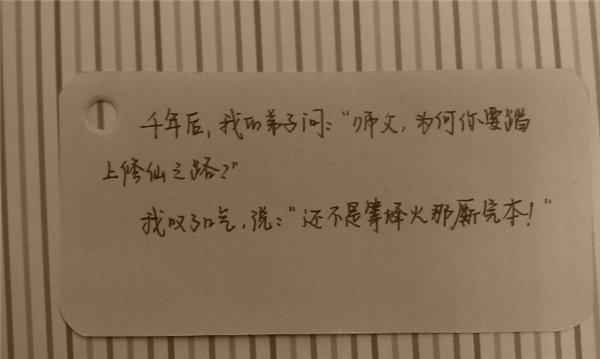 千年后，我的弟子问：“师父，为何你要踏
上修仙之路？”
我叹了口气，说：“还不是等烽火那厮完本！”